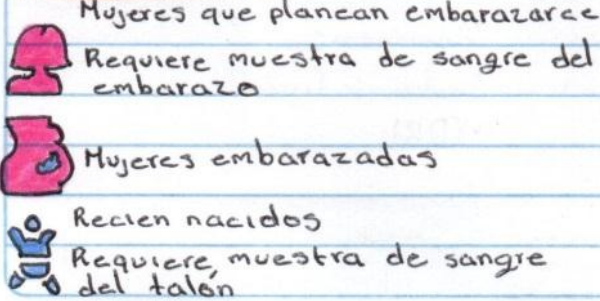 Mujeres que planean embarazarce
Requiere muestra de sangre del
embarazo
Mujeres embarazadas
Recien nacidos
Requiere muestra de sangre
del talón